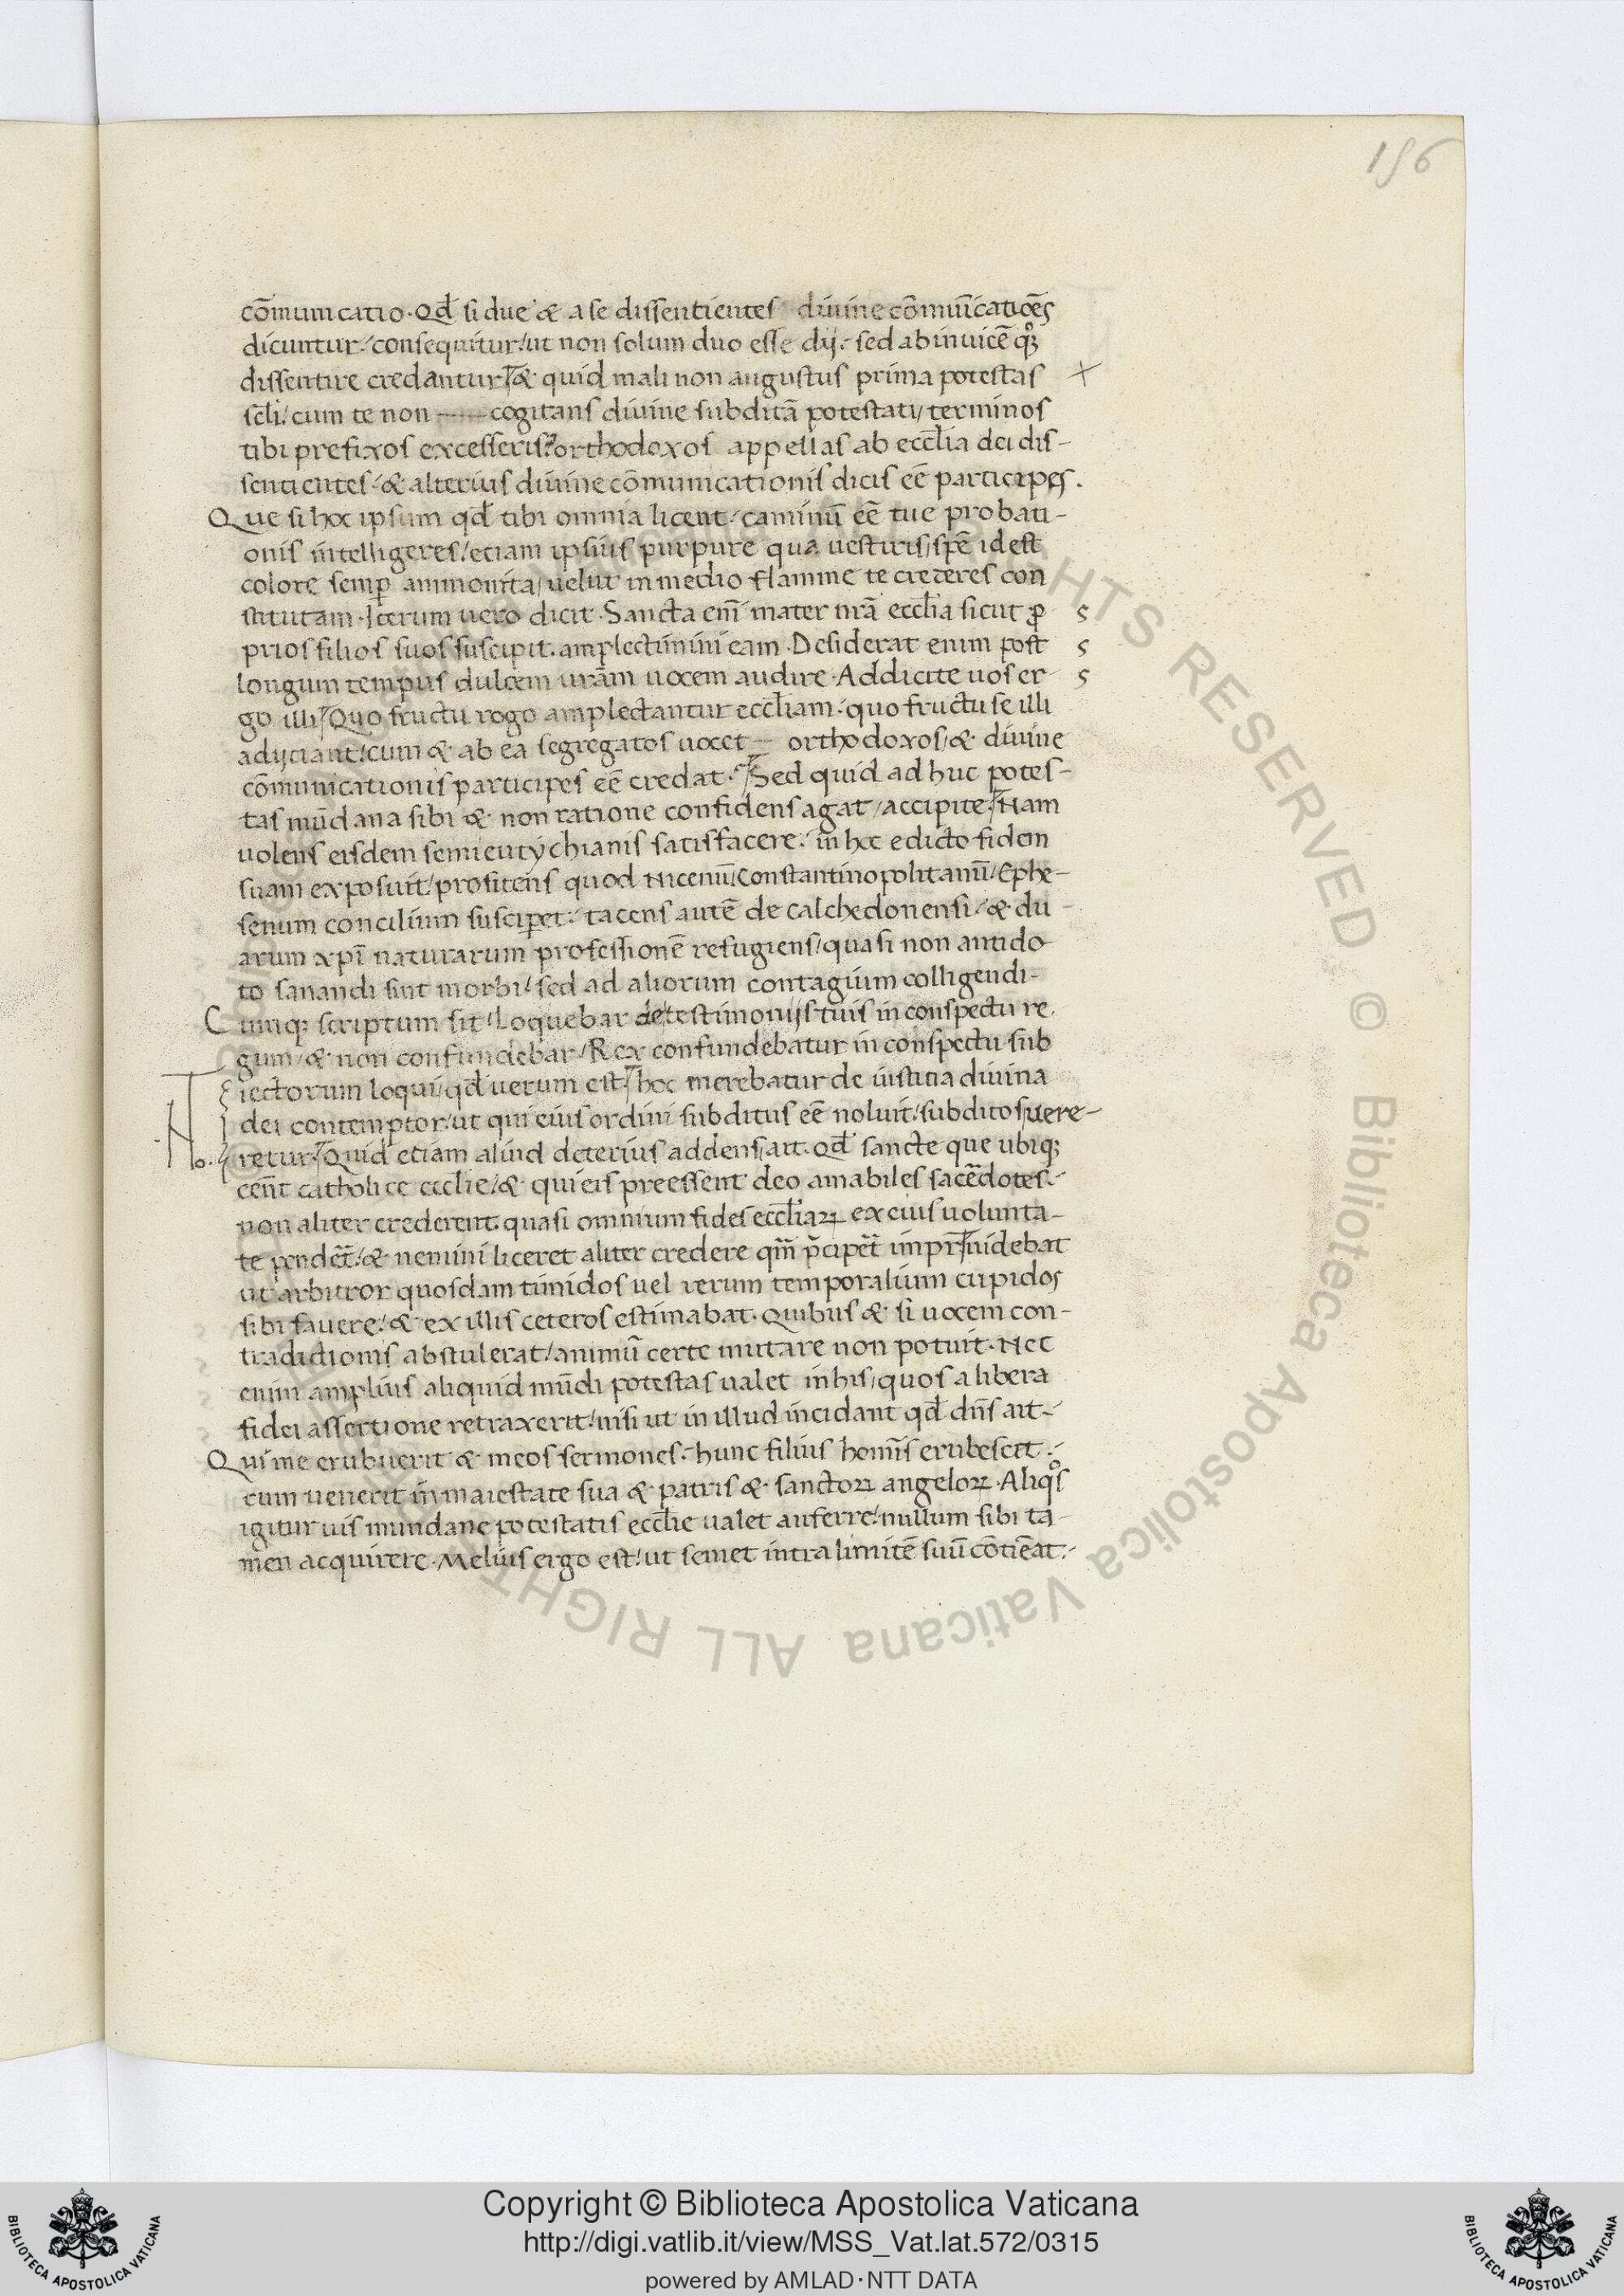 156
cōmunicatio. Qd̄ si due & a se dissentientes divine cōmunicatiōes
dicuntur / consequitur / ut non solum duo esse dij / sed ab invicē qͦꝫ
dissentire credantur & quid mali non augustus prima potestas
scl̄i / cum te non —— cogitans divine subditā potestati / terminos
tibi prefixos excesseris orthodoxos appellas ab eccl̄ia dei dis-
sentientes / & alterius divine cōmunicationis dicis eē participes.
Que si hoc ipsum qd̄ tibi omnia licent / caminū eē tue probati-
onis intelligeres / etiam ipsius purpure qua vestiris / spē id est
colore semꝑ ammonita / velut in medio flamme te crederes con
stitutam. Iterum vero dicit. Sancta eni̅ mater nr̄a eccl̄ia sicut ꝓ s
prios filios suos suscipit. amplectimini eam. Desiderat enim post s
longum tempus dulcem vr̄am vocem audire. Addicite vos er- s
go illi Quo fructu rogo amplectantur eccl̄iam / quo fructu se illi
adijciant / cum & ab ea segregatos vocet — orthodoxos / & divine
cōmunicationis participes eē credat. Sed quid ad huc potes-
tas mūdana sibi & non ratione confidens agat / accipite. Nam
volens eisdem semieutychianis satisfacere / in hoc edicto fidem
suam exposuit / profitens quod Nicenū / Constantinopolitanū / Ephe-
senum concilium susciperet / tacens autē de calchedonensi / & du-
arum xp̄i naturarum professionē refugiens / quasi non antido-
to sanandi sint morbi / sed ad aliorum contagium colligendi-
Cumqꝫ scriptum sit / Loquebar de testimonijs tuis in conspectu re.
gum / & non confundebar / Rex confundebatur in conspectu sub
iectorum loqui / qd̄ verum est / hoc merebatur de iusticia divina
dei contemptor / ut qui eius ordini subditus eē noluit / subditos vere-
retur. Quid etiam aliud deterius addens / ait. Qd̄ sancte que ubiqꝫ
cent̄ catholice eccl̄ie / & qui eis preessent deo amabiles sacēdotes.-
non aliter crederent. quasi omnium fides eccl̄iaꝝ ex eius volunta-
te pendēt̄ / & nemini liceret aliter credere qm̄ p̄cipet̄ impr̄ videbat
ut arbitror quosdam timidos vel rerum temporalium cupidos
sibi favere / & ex illis ceteros estimabat. Quibus & si vocem con-
tradictionis abstulerat / animū certe mutare non potuit. Nec
enim amplius aliquid mūdi potestas valet in his / quos a libera
fidei assertione retraxerit / nisi ut in illud incidant qd̄ dn̄s ait.-
Qui me erubuerit & meos sermones / hunc filius homīs erubescet.-
cum venerit in maiestate sua & patris & sanctoꝝ angeloꝝ. Aliqͦs
igitur vis mundane potestatis eccl̄ie valet auferre / nullum sibi ta-
men acquirere. Melius ergo est / ut semet intra limitē suū cōtīeat.-
Copyright © Biblioteca Apostolica Vaticana
http://digi.vatlib.it/view/MSS_Vat.lat.572/0315
powered by AMLAD·NTT DATA
BIBLIOTECA APOSTOLICA VATICANA
BIBLIOTECA APOSTOLICA VATICANA